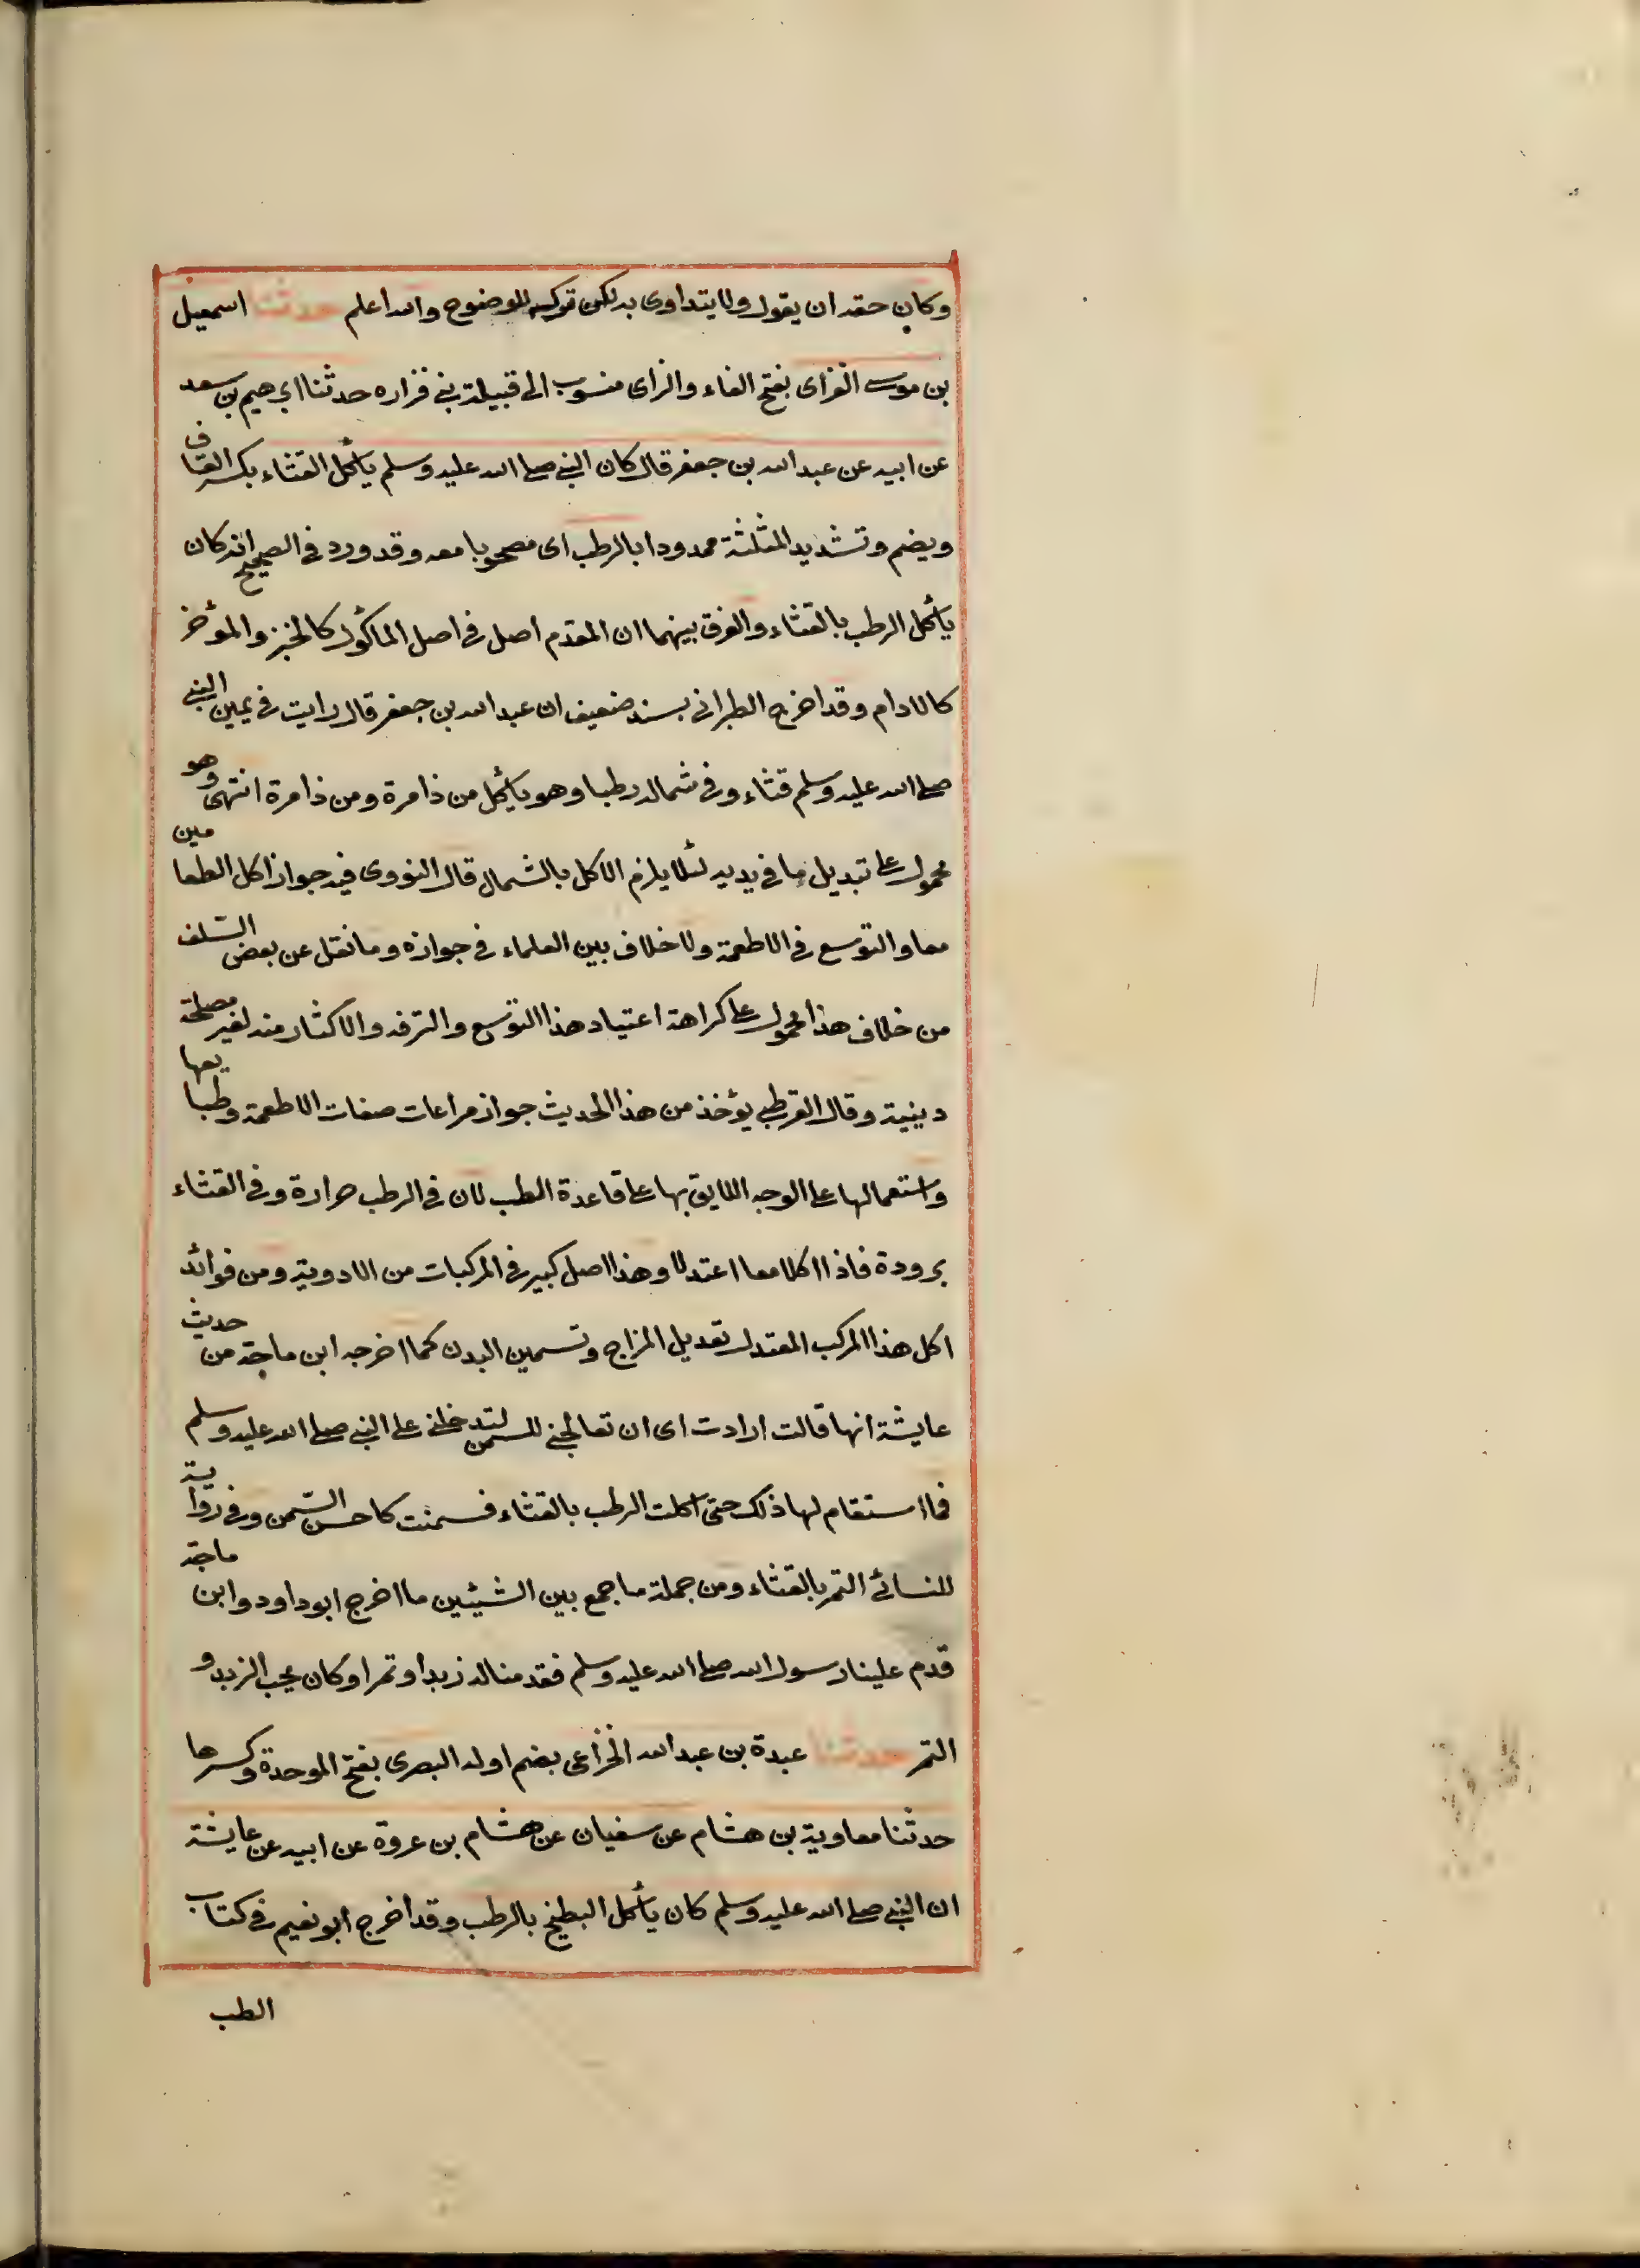 وكان حقه ان يقول ولا يتداوى به لكن تركه للوضوح والله اعلم حدثنا اسمعيل
بن موسى الفزاى بفتح الفاء والزاى منسوب الى قبيلة بنى فزاره حدثنا ابرهيم بن سعد
عن ابيه عن عبدالله بن جعفر قال كان النبى صلى الله عليه وسلم يأكل القثاء بكسر القاف
ويضم وتشديد المثلثة ممدودا بالرطب اى مصحوبا معه وقد ورد فى الصحيح انه كان
يأكل الرطب بالقثاء والفرق بينهما ان المقدم اصل فى اصل المأكول كالخبز والمؤخر
كالادام وقد اخرج الطبرانى بسند ضعيف ان عبدالله بن جعفر قال رايت فى يمين النبى
صلى الله عليه وسلم قثاء وفى شماله رطبا وهو يأكل من ذا مرة ومن ذا مرة انتهى وهو
محمول على تبديل ما فى يديه لئلا يلزم الاكل بالشمال قال النووى فيه جواز اكل الطعامين
معا والتوسع فى الاطعمة ولا خلاف بين العلماء فى جوازه وما نقل عن بعض السلف
من خلاف هذا محمول على كراهة اعتياد هذا التوسع والترفه والاكثار منه لغير مصلحة
دينية وقال القرطبى يؤخذ من هذا الحديث جواز مراعات صفات الاطعمة وطبايعها
واستعمالها على الوجه اللايق بها على قاعدة الطب لان فى الرطب حرارة وفى القثاء
برودة فاذا اكلا معا اعتدلا وهذا اصل كبير فى المركبات من الادوية ومن فوائد
اكل هذا المركب المعتدل تعديل المزاج وتسمين البدن كما اخرجه ابن ماجة من حديث
عايشة انها قالت ارادت اى ان تعالجنى للسمن لتدخلنى على النبى صلى الله عليه وسلم
فما استقام لها ذلك حتى اكلت الرطب بالقثاء فسمنت كاحسن السمن وفى رواية
للنسائى التمر بالقثاء ومن جملة ما جمع بين الشيئين ما اخرج ابو داود وابن ماجة
قدم علينا رسول الله صلى الله عليه وسلم فقدمنا له زبدا وتمرا وكان يحب الزبد و
التمر حدثنا عبدة بن عبدالله الخزاعى بضم اوله البصرى بفتح الموحدة وكسرها
حدثنا معاوية بن هشام عن سفيان عن هشام بن عروة عن ابيه عن عايشة
ان النبى صلى الله عليه وسلم كان يأكل البطيخ بالرطب وقد اخرج ابو نعيم فى كتاب
الطب